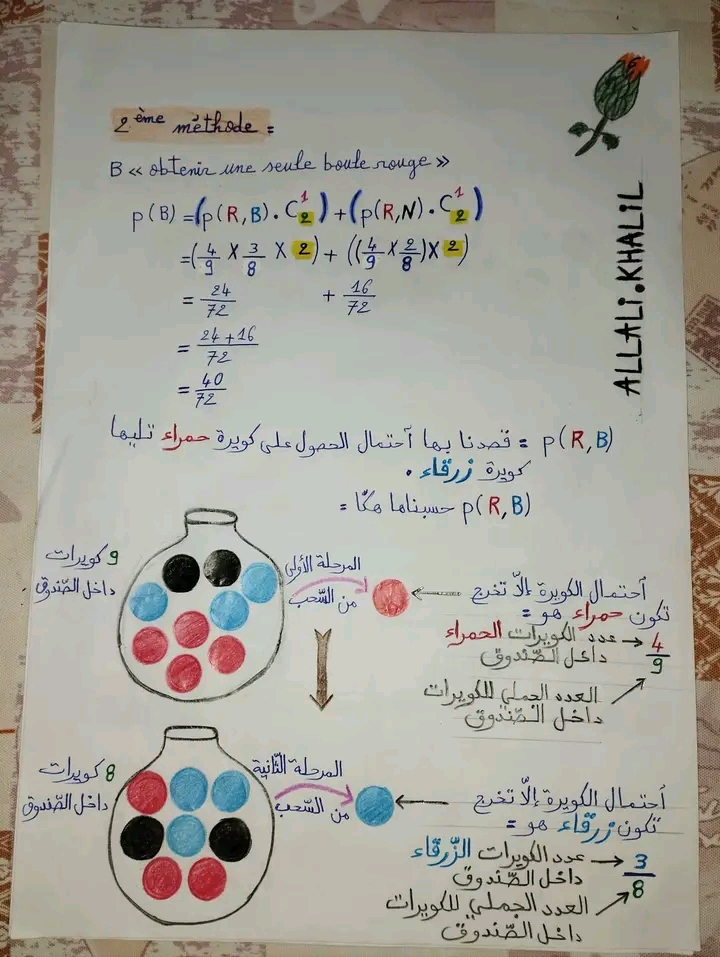 2ème méthode =
B « obtenir une seule boule rouge »
p(B) = (p(R,B) . C¹₂) + (p(R,N) . C¹₂)
= (4/9 × 3/8 × 2) + ((4/9 × 2/8) × 2)
= 24/72 + 16/72
= 24+16/72
= 40/72
ALLALI.KHALIL
p(R,B) = قصدنا بها أحتمال الحصول على كويرة حمراء تليها
كويرة زرقاء .
p(R,B) حسبناها هكا =
9 كويرات
داخل الصّندوق
المرحلة الأولى
من السّحب
أحتمال الكويرة إلاّ تخرج
تكون حمراء هو =
4/9
عدد الكويرات الحمراء
داخل الصّندوق
العدد الجملي للكويرات
داخل الصّندوق
8 كويرات
داخل الصّندوق
المرحلة الثّانية
من السّحب
أحتمال الكويرة إلاّ تخرج
تكون زرقاء هو =
3/8
عدد الكويرات الزّرقاء
داخل الصّندوق
العدد الجملي للكويرات
داخل الصّندوق